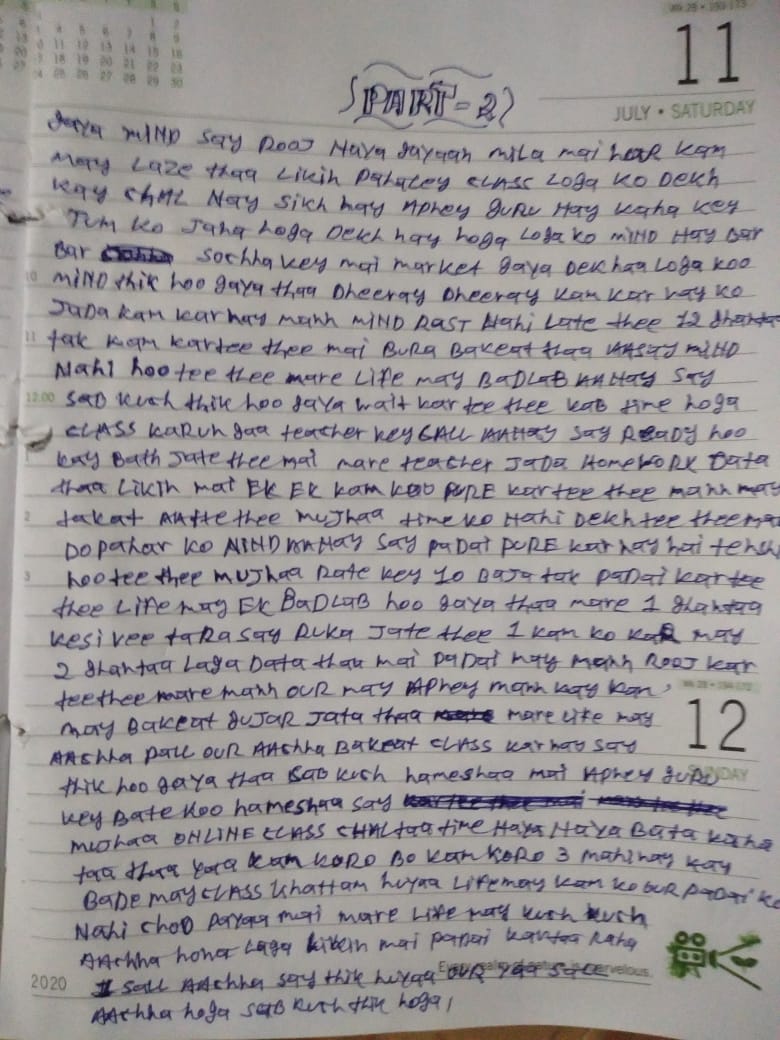 11
JULY • SATURDAY
(PART-2)
gaya MIND say ROOJ Naya gayaan mila mai har kam
may Laze thaa Likin Pahaley CLASS Loga ko Dekh
kay CHAL Nay sikh nay APney guru Nay kaha key
Tum ko Jana hoga Dekh nay hoga Loga ko MIND Nay Bar
Bar sochha key mai market gaya Dekhaa Loga koo
10
MIND thik hoo gaya thaa Dheeray Dheeray kam kar nay ko
JaDa kam kar nay mann MIND RAST Nahi Late thee 12 ghantaa
11
tak kam kartee thee mai BURA Bakeat thaa AASAY MIND
Nahi hootee thee mare Life may BaDLAB AANAY SAY
12.00
SAB kuch thik hoo gaya wait kartee thee kab time hoga
CLASS karungaa teacher key CALL AANAY say READY hoo
kay Bath Jate thee mai mare teacher JaDa HomewoRK Data
thaa Likin mai EK EK kam koo PURE kartee thee mann may
2
takat AAtte thee mujhaa time ko Nahi Dekhtee thee mai
Dopahar ko NIND AANAY say padai PURE kar nay hai tensi
3
hootee thee mujhaa Rate key 10 Baja tak padai kartee
thee Life may EK BaDLAB hoo gaya thaa mare 1 ghantaa
kesi vee taRa say Ruka Jate thee 1 kam ko kaR may
2 ghantaa Laga Data thaa mai padai may mann ROOJ kar
teethee mare mann OUR may APney mann kay kam
may Bakeat gujar Jata thaa mare Life may
12
AAchha PALL OUR AAchha Bakeat CLASS kar nay say
SUNDAY
thik hoo gaya thaa SAB kuch hameshaa mai APney guru
key Bate koo hameshaa say
mujhaa ONLINE CLASS CHALtaa time Naya Naya Bata kaha
taa thaa yaa kam KORO Bo kam KORO 3 mahinay kay
BaDe may CLASS khattam huyaa Life may kam ko our padai ko
Nahi choD Payaa mai mare Life may kuch kuch
AAchha hona Laga Likin mai padai kartaa Raha
2020
sall AAchha say thik huyaa OUR yaa sall
AAchha hoga SAB kuch thik hoga,